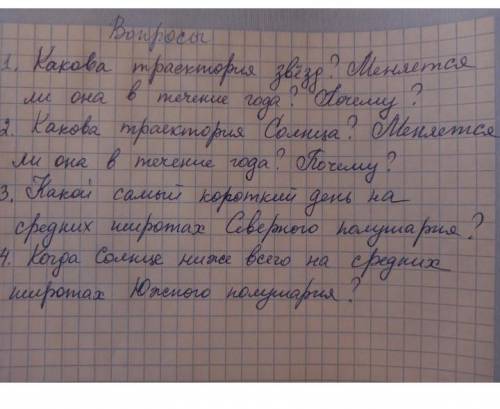 Вопросы
1. Какова траектория звёзд? Меняется
ли она в течение года? Почему?
2. Какова траектория Солнца? Меняется
ли она в течение года? Почему?
3. Какой самый короткий день на
средних широтах Северного полушария?
4. Когда Солнце ниже всего на средних
широтах Южного полушария?